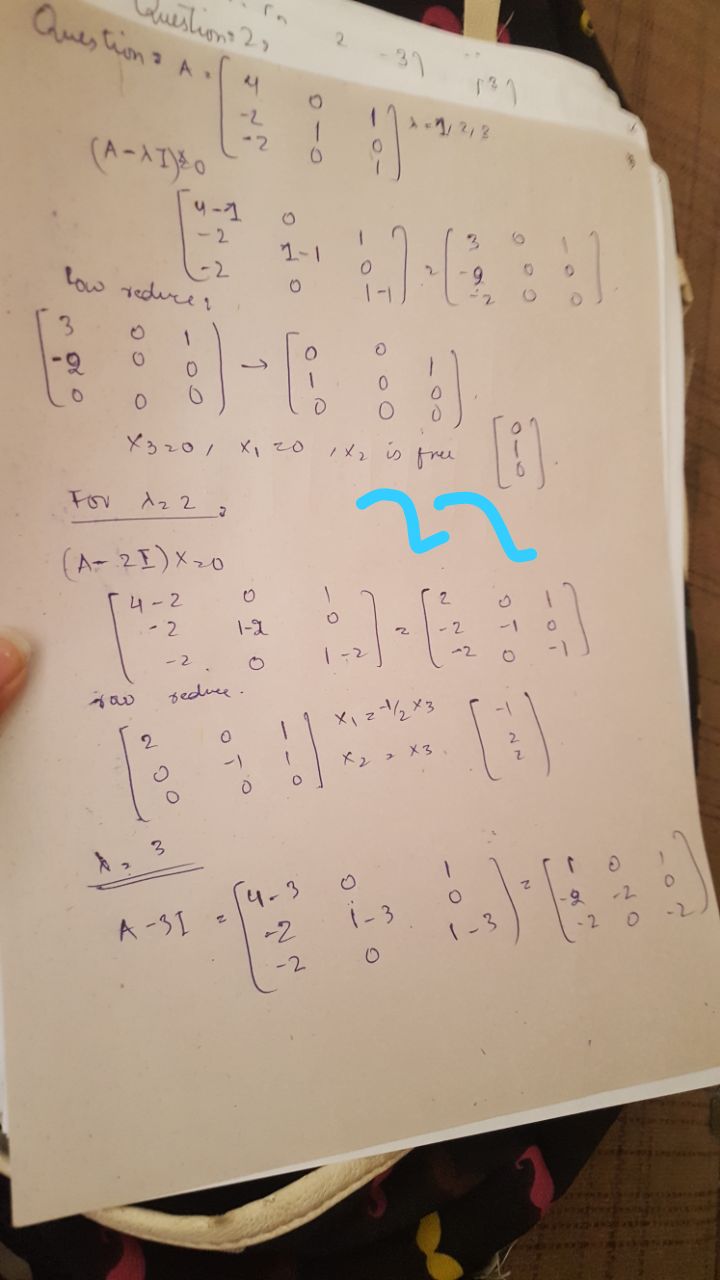 Question:2,
2 -3 [3]
Question: A = [4 0 1
-2 1 0
-2 0 1] λ = 1, 2, 3
(A-λI)=0
[4-1 0 1
-2 1-1 0
-2 0 1-1] = [3 0 1
-2 0 0
-2 0 0].
Row reduce:
[3 0 1
-2 0 0
0 0 0] → [0 0 1
1 0 0
0 0 0].
x3=0, x1=0, x2 is free [0
1
0].
For λ=2,
(A-2I)x=0
[4-2 0 1
-2 1-2 0
-2 0 1-2] = [2 0 1
-2 -1 0
-2 0 -1]
row reduce.
[2 0 1
0 -1 1
0 0 0] x1=-1/2x3
x2 = x3. [-1
2
2].
λ= 3
A-3I = [4-3 0 1
-2 1-3 0
-2 0 1-3] = [1 0 1
-2 -2 0
-2 0 -2]